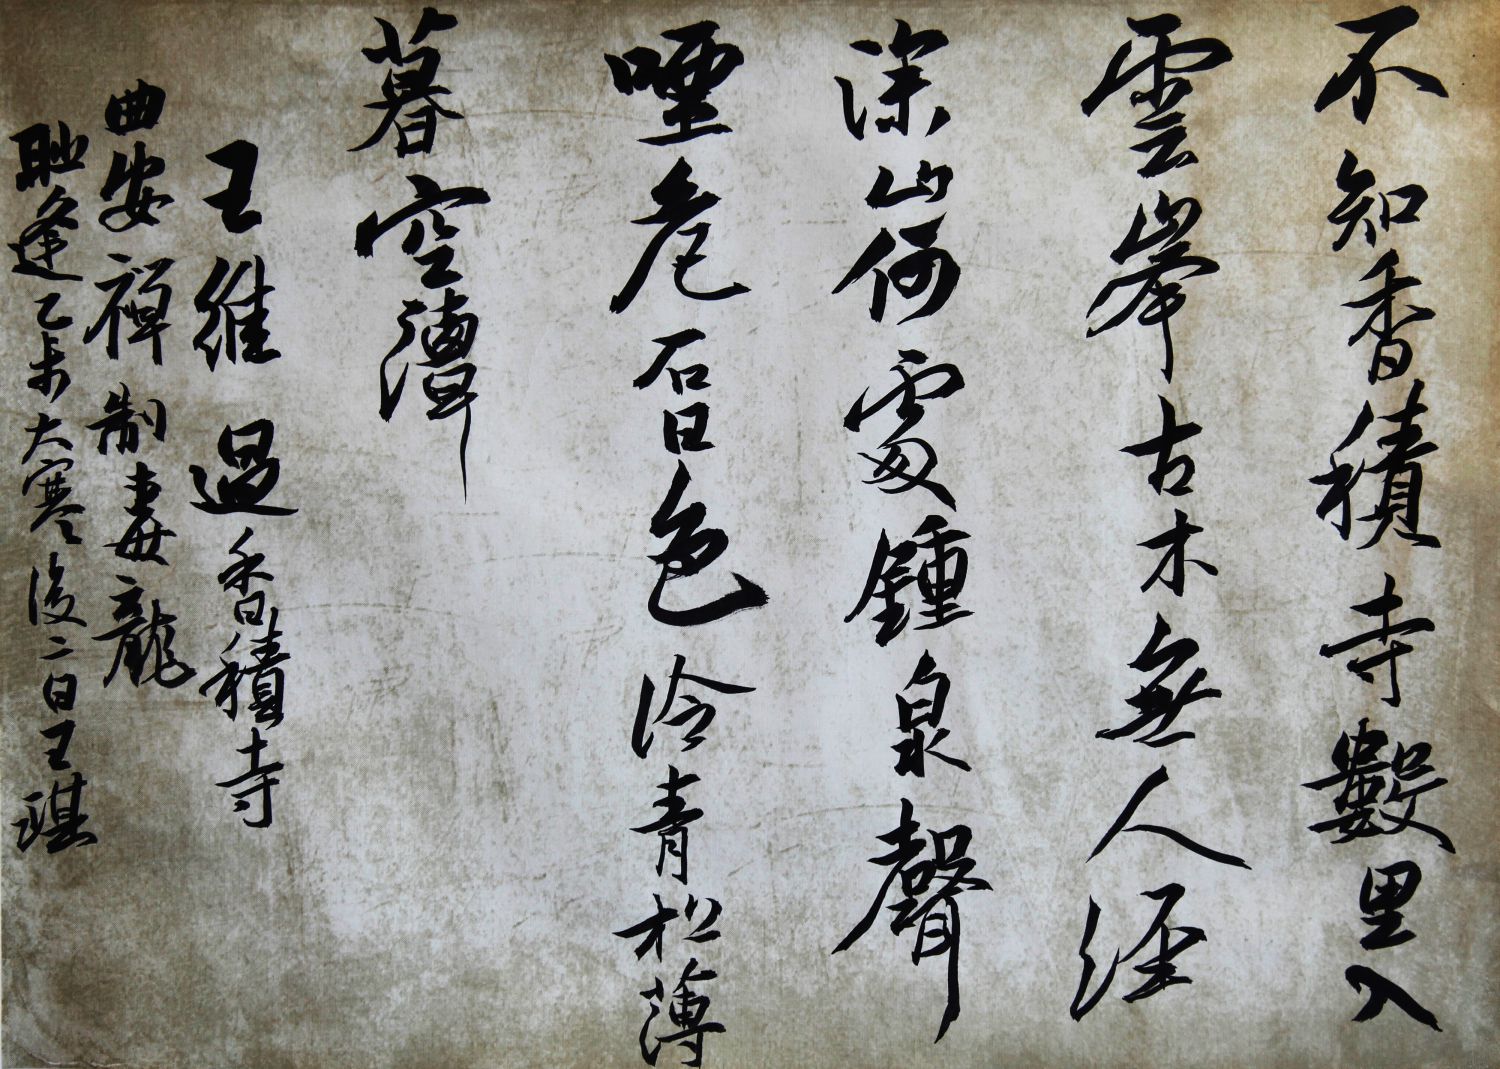 不知香積寺數里入
雲峯古木無人徑
深山何處鍾泉聲
咽危石日色冷青松薄
暮空潭
王維過香積寺
曲安禪制毒龍
逢乙未大寒後二日王琪